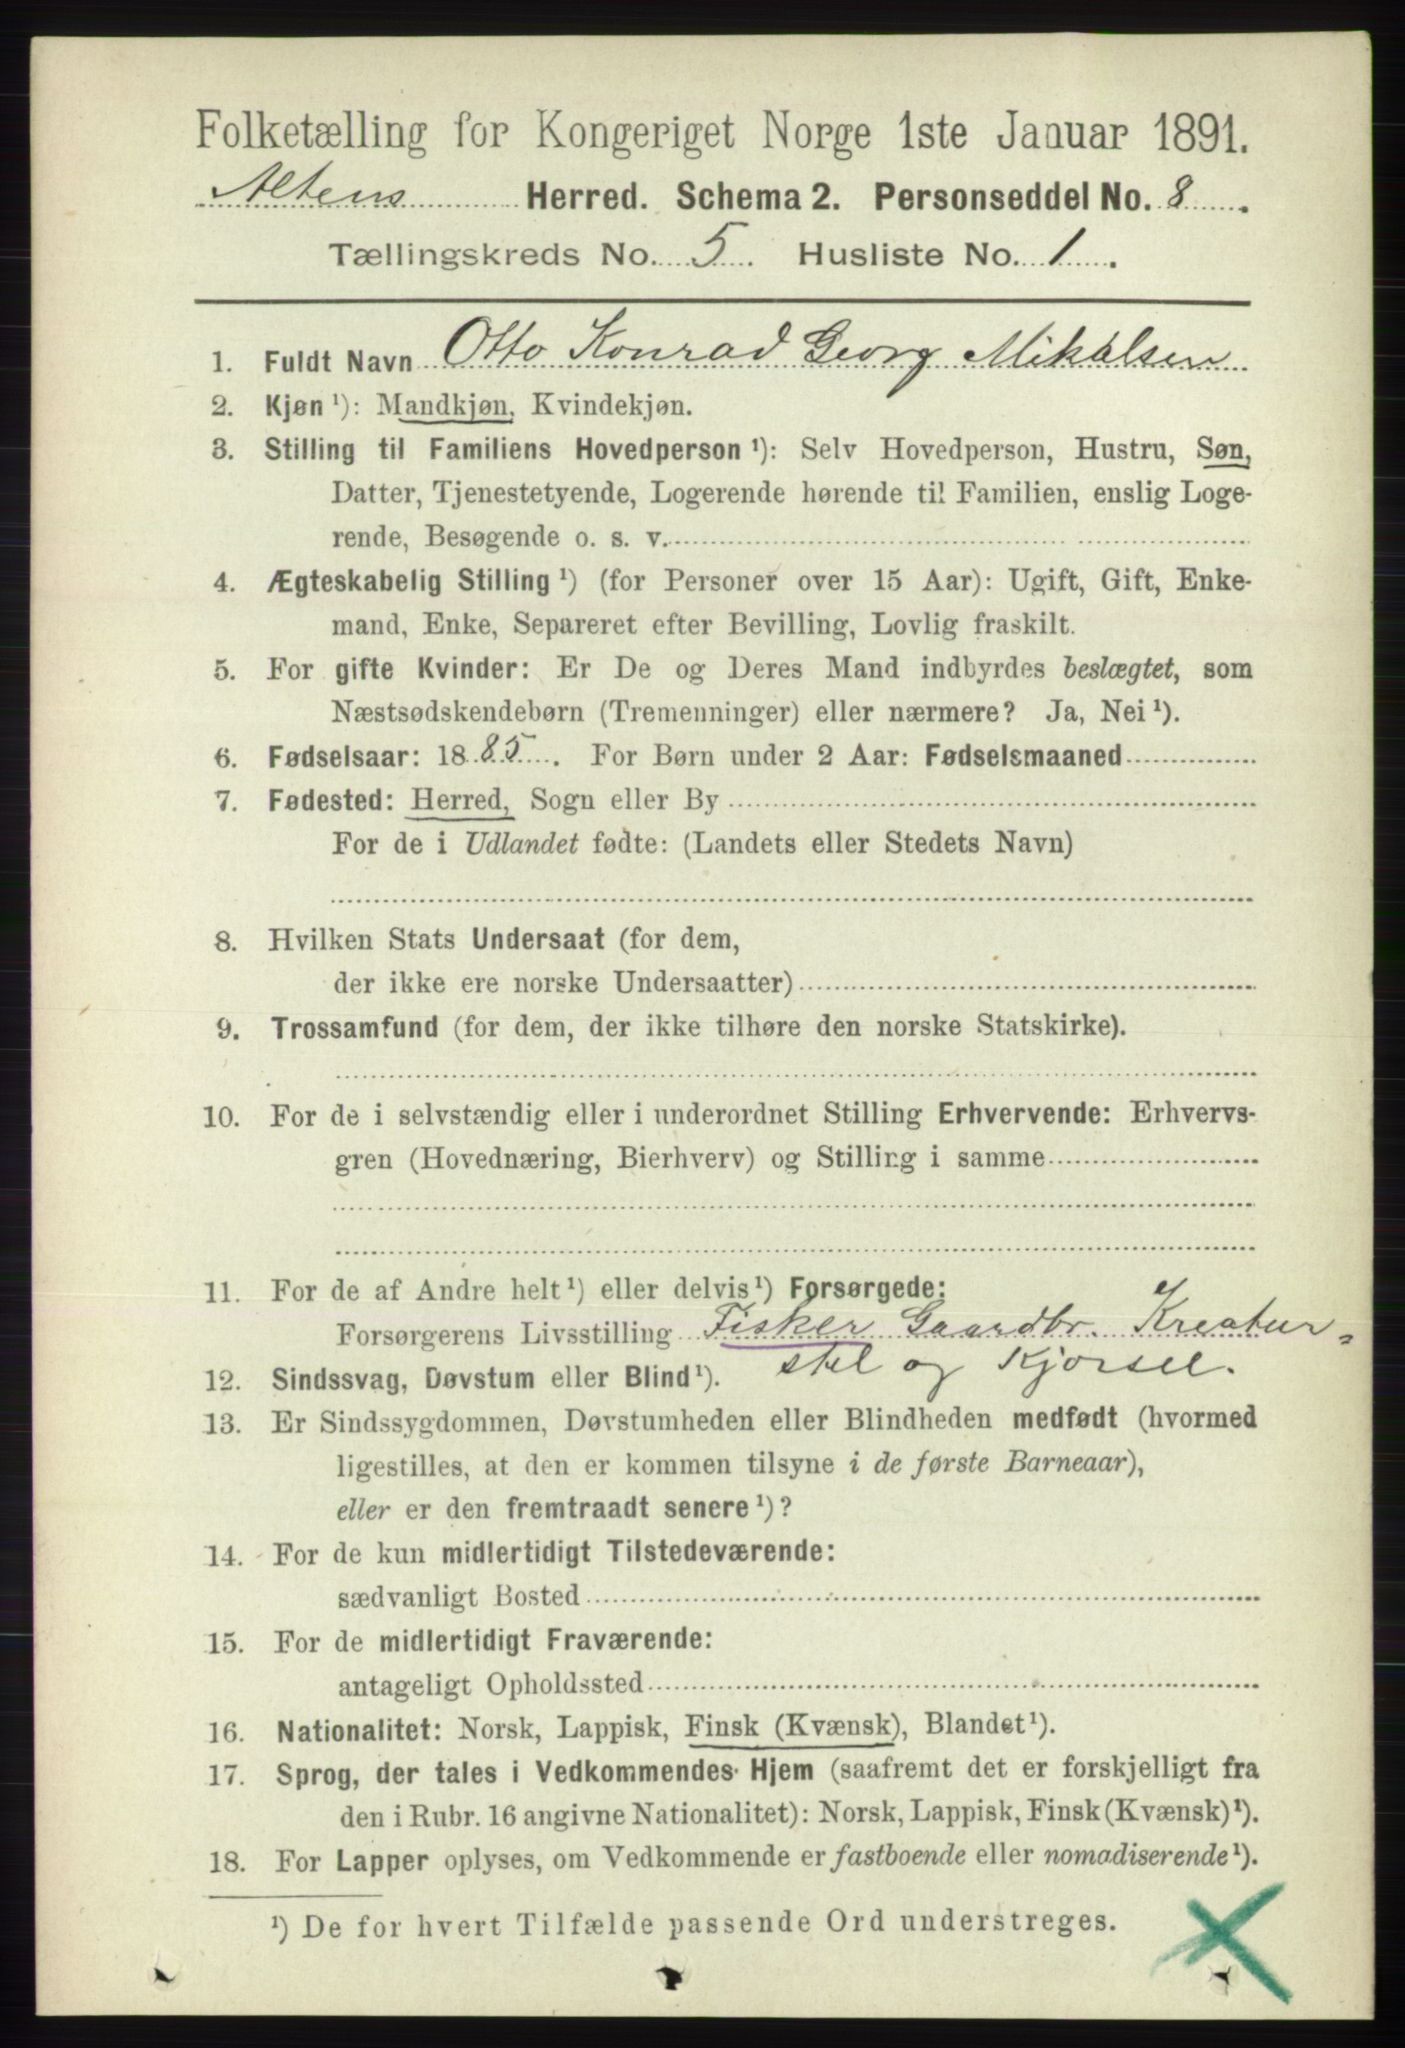 Folketælling for Kongeriget Norge 1ste Januar 1891.
Altens Herred. Schema 2. Personseddel No. 8.
Tællingskreds No. 5. Husliste No. 1.
1. Fuldt Navn Otto Konrad Georg Mikalsen
2. Kjøn ¹): Mandkjøn, Kvindekjøn.
3. Stilling til Familiens Hovedperson ¹): Selv Hovedperson, Hustru, Søn,
Datter, Tjenestetyende, Logerende hørende til Familien, enslig Loge-
rende, Besøgende o. s. v.
4. Ægteskabelig Stilling ¹) (for Personer over 15 Aar): Ugift, Gift, Enke-
mand, Enke, Separeret efter Bevilling, Lovlig fraskilt.
5. For gifte Kvinder: Er De og Deres Mand indbyrdes beslægtet, som
Næstsødskendebørn (Tremenninger) eller nærmere? Ja, Nei ¹).
6. Fødselsaar: 1885. For Børn under 2 Aar: Fødselsmaaned
7. Fødested: Herred, Sogn eller By
For de i Udlandet fødte: (Landets eller Stedets Navn)
8. Hvilken Stats Undersaat (for dem,
der ikke ere norske Undersaatter)
9. Trossamfund (for dem, der ikke tilhøre den norske Statskirke).
10. For de i selvstændig eller i underordnet Stilling Erhvervende: Erhvervs-
gren (Hovednæring, Bierhverv) og Stilling i samme
11. For de af Andre helt ¹) eller delvis ¹) Forsørgede:
Forsørgerens Livsstilling Fisker Gaardbr. Kreatur-
stel og Kjørsel.
12. Sindssvag, Døvstum eller Blind ¹).
13. Er Sindssygdommen, Døvstumheden eller Blindheden medfødt (hvormed
ligestilles, at den er kommen tilsyne i de første Barneaar),
eller er den fremtraadt senere ¹)?
14. For de kun midlertidigt Tilstedeværende:
sædvanligt Bosted
15. For de midlertidigt Fraværende:
antageligt Opholdssted
16. Nationalitet: Norsk, Lappisk, Finsk (Kvænsk), Blandet ¹).
17. Sprog, der tales i Vedkommendes Hjem (saafremt det er forskjelligt fra
den i Rubr. 16 angivne Nationalitet): Norsk, Lappisk, Finsk (Kvænsk) ¹).
18. For Lapper oplyses, om Vedkommende er fastboende eller nomadiserende ¹).
¹) De for hvert Tilfælde passende Ord understreges.